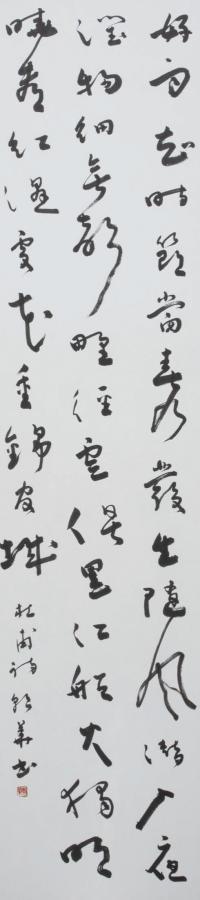 好雨知時節當春乃發生隨風潛入夜
潤物細無聲野徑雲俱黑江船火獨明
曉看紅濕處花重錦官城
杜甫詩華書